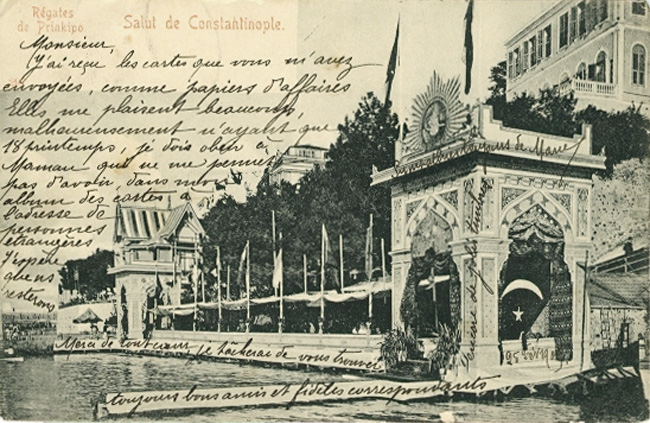 Régates
de Prinkipo.
Salut de Constantinople.
Monsieur,
J'ai reçu les cartes que vous m'avez
envoyées, comme papiers d'affaires
Elles me plaisent beaucoup,
malheureusement n'ayant que
18 printemps, je dois obéir à
Maman qui ne me permet
pas d'avoir, dans mon
album des cartes à
l'adresse de
personnes
étrangères
J'espère
que ns
resterons
toujours bons amis et fidèles correspondants
Merci de tout cœur, je tâcherai de vous trouver
de